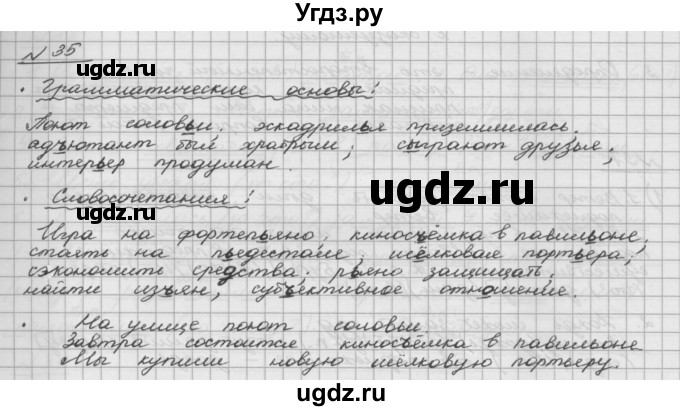 Угдз.ру
№ 35
• Грамматические основы!
Поют соловьи, эскадрилья приземлилась,
адъютант был храбрым; сыграют друзья;
интерьер продуман.
• Словосочетания!
Игра на фортепьяно, киносъёмка в павильоне;
стоять на пьедестале; шёлковая портьера;
сэкономить средства, рьяно защищать;
найти изъян, субъективное отношение.
• На улице поют соловьи
Завтра состоится киносъёмка в павильоне
Мы купили новую шёлковую портьеру.
ugdz.ru
ugdz.ru
ugdz.ru
ugdz.ru
ugdz.ru
ugdz.ru
ugdz.ru